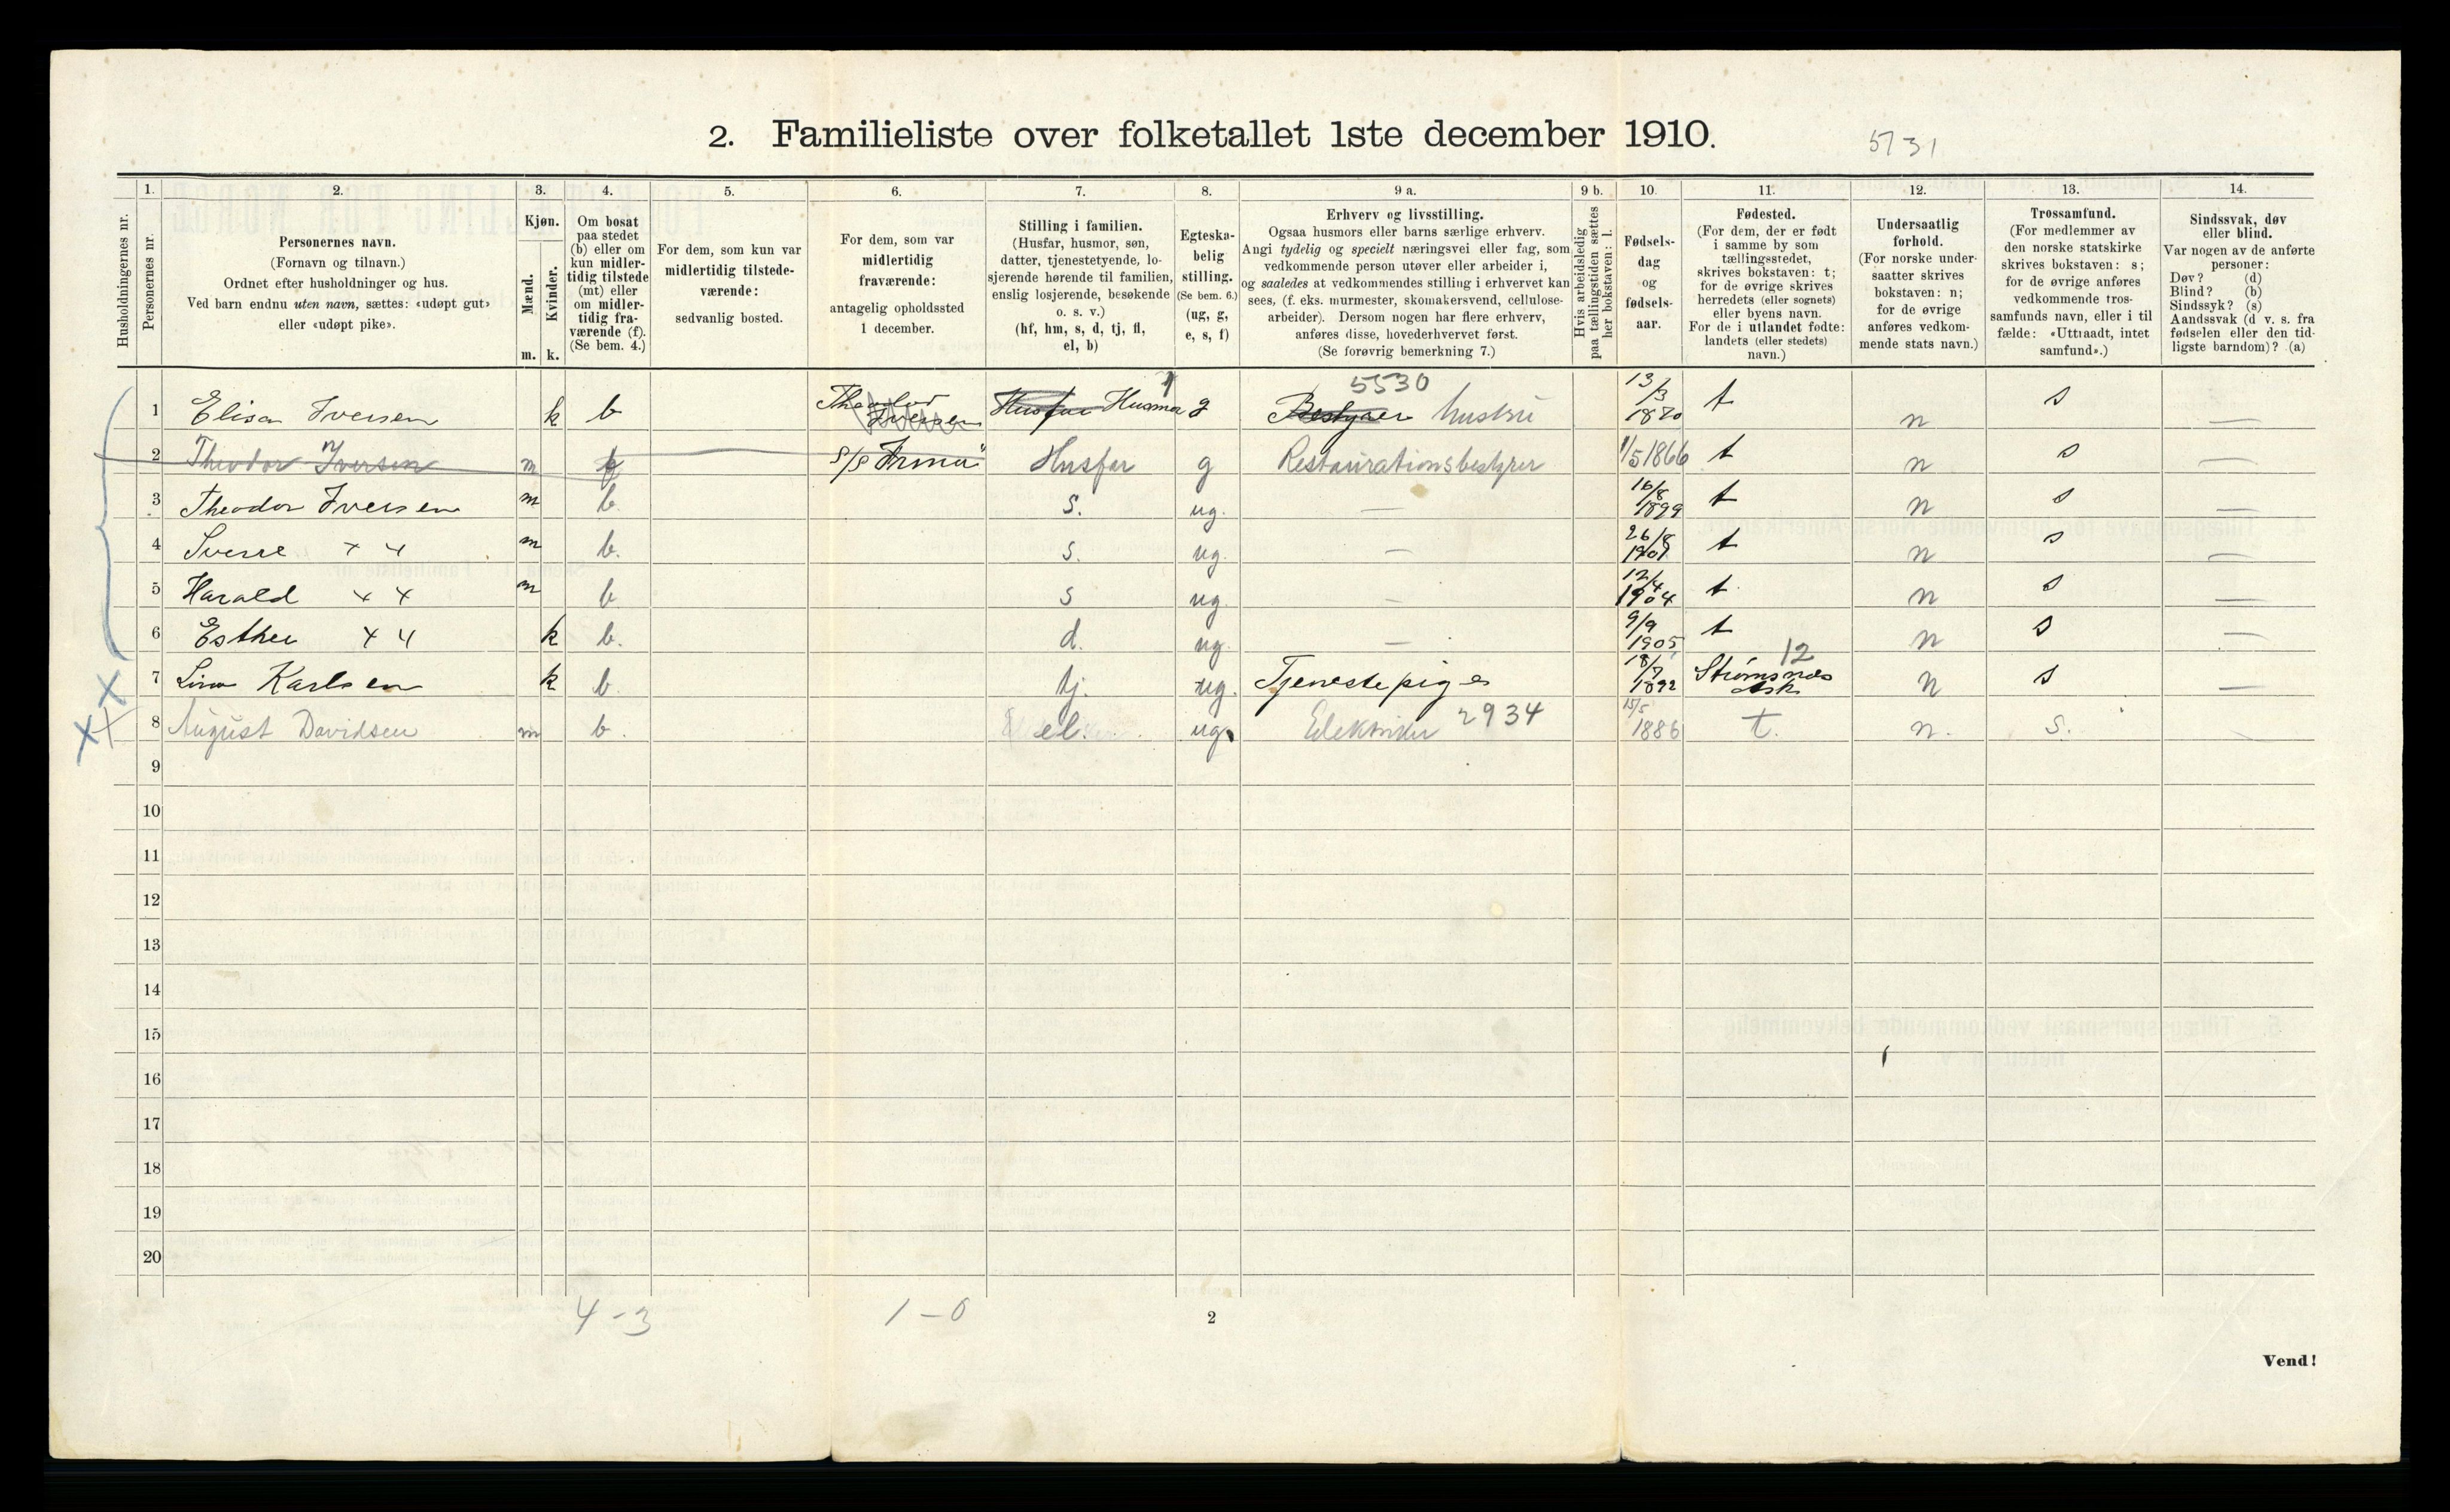 2. Familieliste over folketallet 1ste december 1910.
5731
1. 2. 3. 4. 5. 6. 7. 8. 9 a. 9 b. 10. 11. 12. 13. 14.
Husholdningernes nr.
Personernes nr.
Personernes navn.
(Fornavn og tilnavn.)
Ordnet efter husholdninger og hus.
Ved barn endnu uten navn, sættes: «udøpt gut»
eller «udøpt pike».
Kjøn.
Mænd.
Kvinder.
m. k.
Om bosat
paa stedet
(b) eller om
kun midler-
tidig tilstede
(mt) eller
om midler-
tidig fra-
værende (f).
(Se bem. 4.)
For dem, som kun var
midlertidig tilstede-
værende:
sedvanlig bosted.
For dem, som var
midlertidig
fraværende:
antagelig opholdssted
1 december.
Stilling i familien.
(Husfar, husmor, søn,
datter, tjenestetyende, lo-
sjerende hørende til familien,
enslig losjerende, besøkende
o. s. v.)
(hf, hm, s, d, tj, fl,
el, b)
Egteska-
belig
stilling.
(Se bem. 6.)
(ug, g,
e, s, f)
Erhverv og livsstilling.
Ogsaa husmors eller barns særlige erhverv.
Angi tydelig og specielt næringsvei eller fag, som
vedkommende person utøver eller arbeider i,
og saaledes at vedkommendes stilling i erhvervet kan
sees, (f. eks. murmester, skomakersvend, cellulose-
arbeider). Dersom nogen har flere erhverv,
anføres disse, hovederhvervet først.
(Se forøvrig bemerkning 7.)
Hvis arbeidsledig
paa tællingstiden sættes
her bokstaven: l.
Fødsels-
dag
og
fødsels-
aar.
Fødested.
(For dem, der er født
i samme by som
tællingsstedet,
skrives bokstaven: t;
for de øvrige skrives
herredets (eller sognets)
eller byens navn.
For de i utlandet fødte:
landets (eller stedets)
navn.)
Undersaatlig
forhold.
(For norske under-
saatter skrives
bokstaven: n;
for de øvrige
anføres vedkom-
mende stats navn.)
Trossamfund.
(For medlemmer av
den norske statskirke
skrives bokstaven: s;
for de øvrige anføres
vedkommende tros-
samfunds navn, eller i til
fælde: «Uttraadt, intet
samfund».)
Sindssvak, døv
eller blind.
Var nogen av de anførte
personer:
Døv? (d)
Blind? (b)
Sindssyk? (s)
Aandssvak (d v. s. fra
fødselen eller den tid-
ligste barndom)? (a)
1 Elisa Iversen k b Theodor Iversen Husfar Husmor g Bestyrer 5530 hustru 13/3 1870 t n s —
2 Theodor Iversen m f S/S Irma" Husfar g Restaurationsbestyrer 1/5 1866 t n s —
3 Theodor Iversen m b. s. ug. — 16/8 1899 t n s —
4 Sverre m b. s. ug. — 26/8 1901 t n s —
5 Harald m b s ug. — 12/4 1904 t n s —
6 Esther k b. d. ug. — 9/9 1905 t n s —
7 Lina Karlsen k b. tj. ug. Tjenestepige 18/7 1892 Strømsnes 12 n s —
8 August Davidsen m b. el. ug. Elektriker 2934 15/5 1886 t. n. s. —
9
10
11
12
13
14
15
16
17
18
19
20
4 - 3 1 - 0
2
Vend!